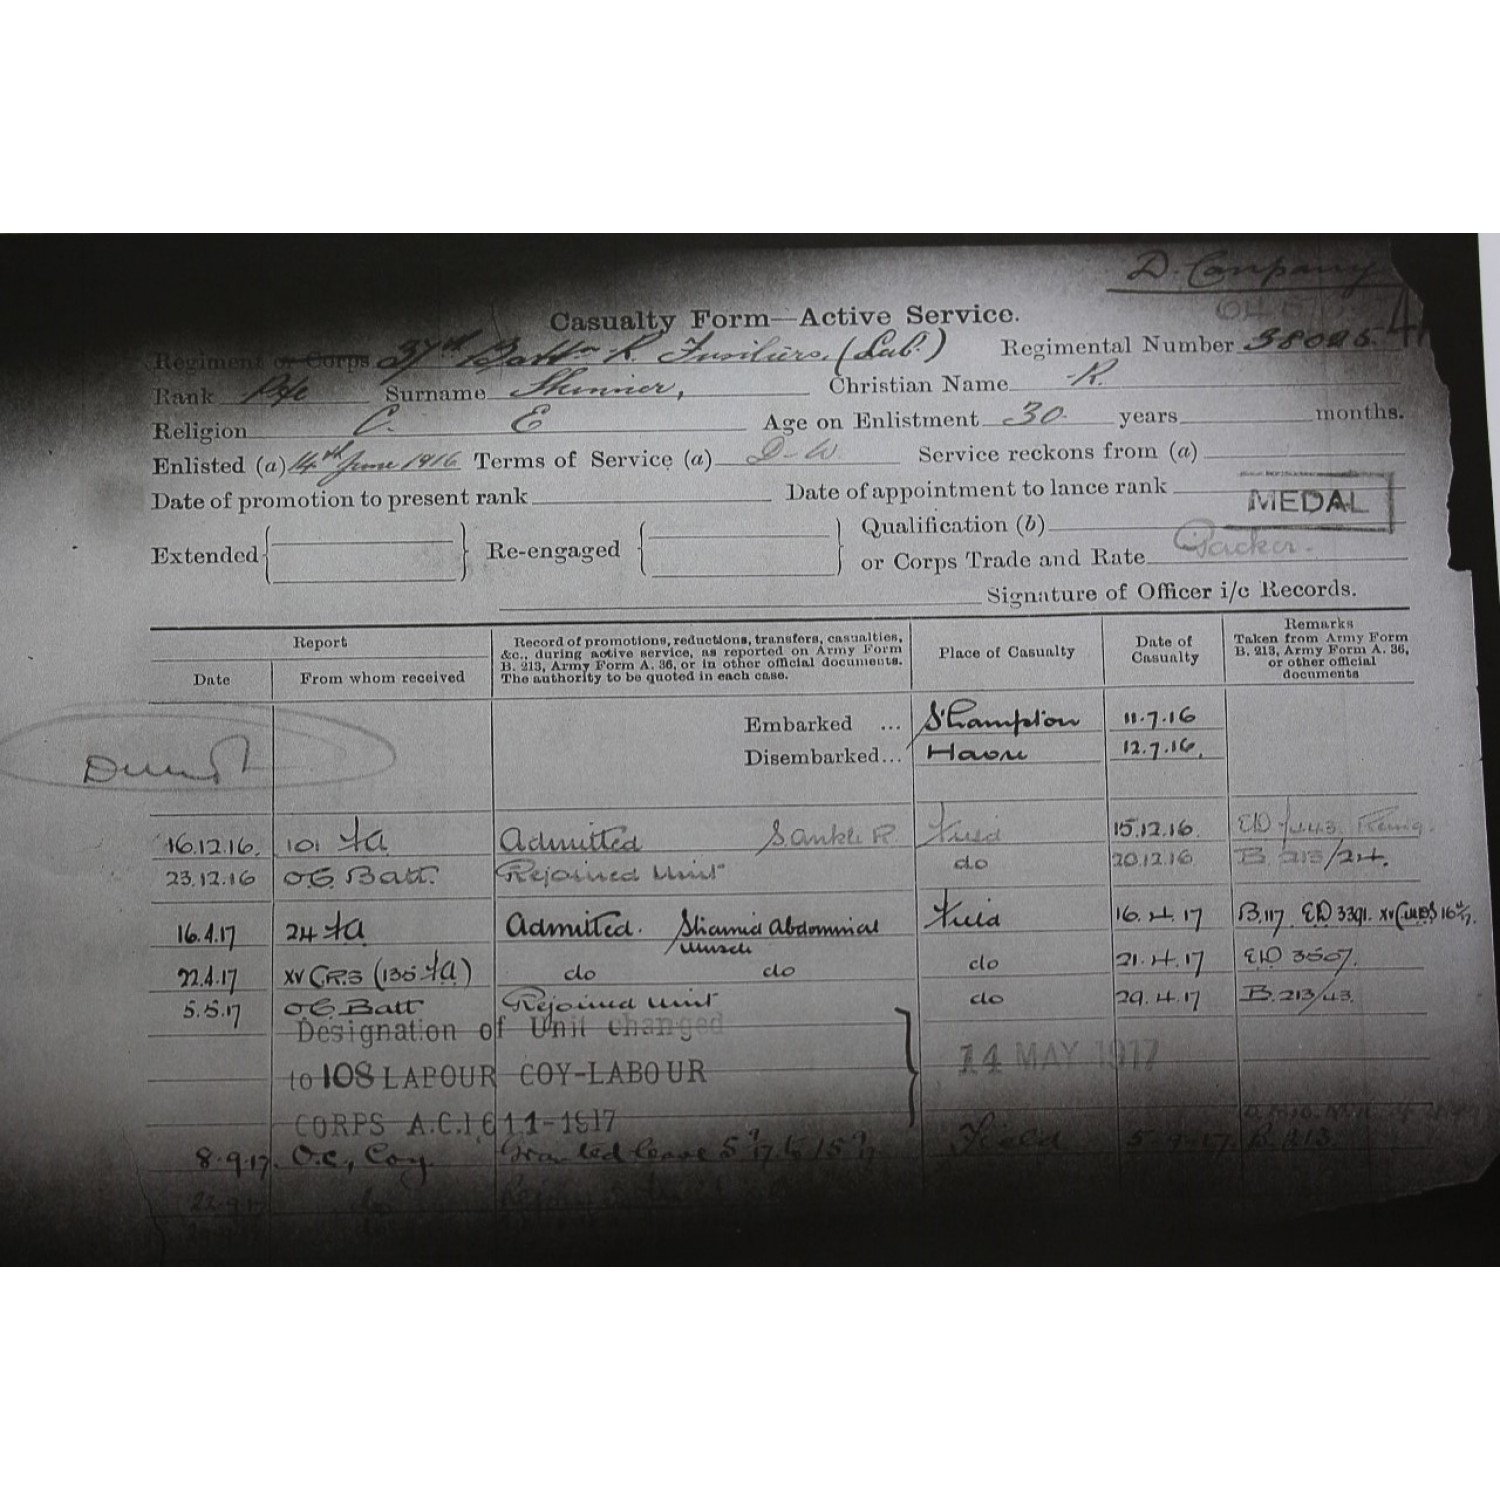 D. Company
Casualty Form—Active Service.
Regiment or Corps 37th Battn R. Fusiliers. (Lab.) Regimental Number 38025.
Rank Pte Surname Skinner, Christian Name R.
Religion C. E Age on Enlistment 30 years months.
Enlisted (a) 14th June 1916 Terms of Service (a) D-W. Service reckons from (a)
Date of promotion to present rank Date of appointment to lance rank
MEDAL
Extended Re-engaged Qualification (b)
or Corps Trade and Rate Packer.
Signature of Officer i/c Records.
Report
Date From whom received
Record of promotions, reductions, transfers, casualties,
&c., during active service, as reported on Army Form
B. 213, Army Form A. 36, or in other official documents.
The authority to be quoted in each case.
Place of Casualty
Date of
Casualty
Remarks
Taken from Army Form
B. 213, Army Form A. 36,
or other official
documents
Embarked ... S'hampton 11.7.16
Disembarked... Havre 12.7.16.
16.12.16. 101 FA Admitted Field 15.12.16.
23.12.16 O.C. Batt. Rejoined Unit do 20.12.16 B. 213/24.
16.4.17 24 FA Admitted. Strained Abdominal Field 16.4.17 B.117 ED 3391.
muscle
22.4.17 XV CRS (135 FA) do do do 21.4.17 ED 3507.
5.5.17 O.C. Batt Rejoined unit do 29.4.17 B.213/43.
Designation of Unit changed
to 108 LABOUR COY-LABOUR 14 MAY 1917
CORPS A.C.I 611-1917
8.9.17 O.C., Coy. Granted leave 5 9/17 to 15 9/17 Field 5.9.17 B.213.